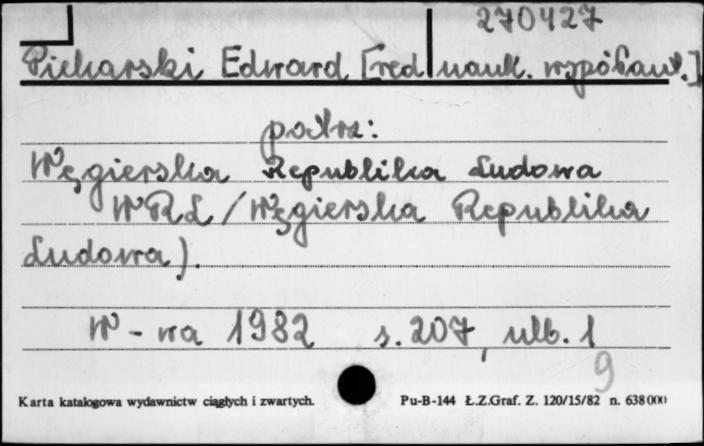 270427
Piekarski Edward [red nauk. współaut.]
patrz:
Węgierska Republika Ludowa
WRL /Węgierska Republika
Ludowa).
W-wa 1982 s. 207, ulb. 1
9
Karta katalogowa wydawnictw ciągłych i zwartych. Pu-B-144 Ł.Z.Graf. Z. 120/15/82 n. 638000